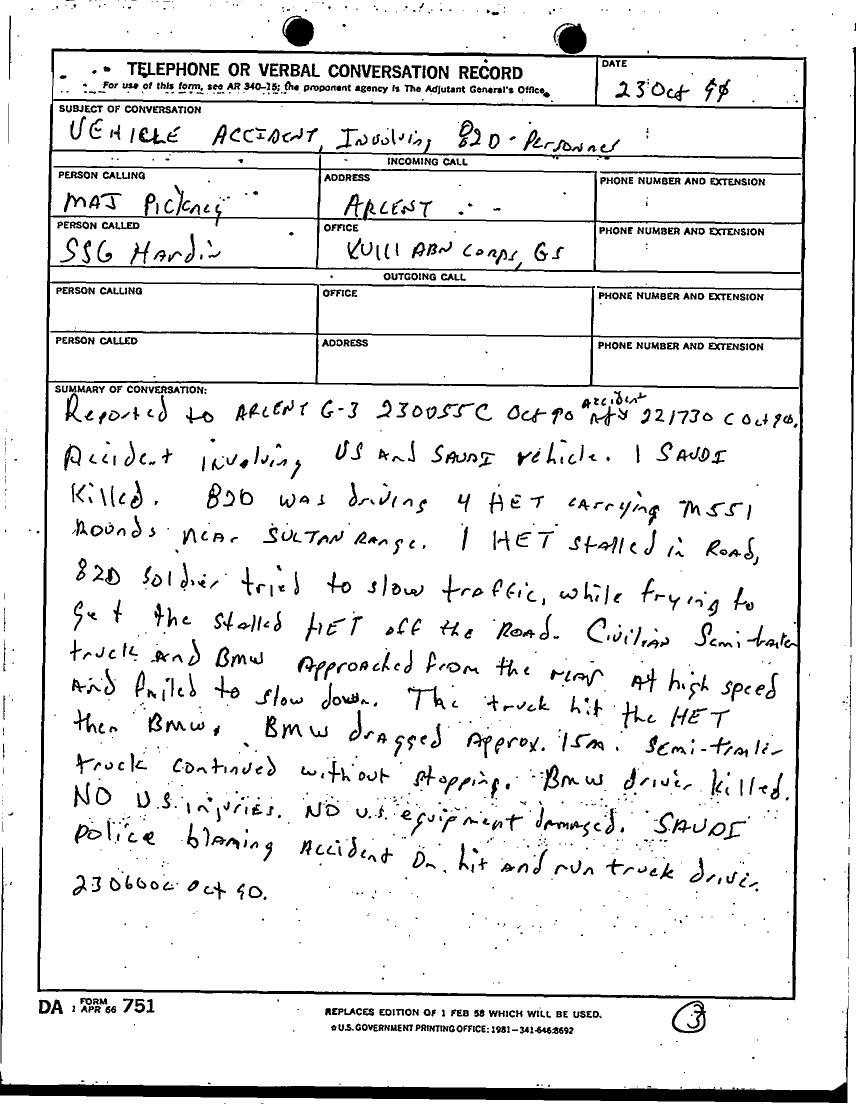 TELEPHONE OR VERBAL CONVERSATION RECORD
For use of this form, see AR 340-15; the proponent agency is The Adjutant General's Office.
DATE
23 Oct 90
SUBJECT OF CONVERSATION
VEHICLE ACCIDENT, Involving 82D - Personnel
INCOMING CALL
PERSON CALLING
MAJ Pickney
ADDRESS
ARCENT
PHONE NUMBER AND EXTENSION
PERSON CALLED
SSG Hardin
OFFICE
XVIII ABN Corps, G3
PHONE NUMBER AND EXTENSION
OUTGOING CALL
PERSON CALLING
OFFICE
PHONE NUMBER AND EXTENSION
PERSON CALLED
ADDRESS
PHONE NUMBER AND EXTENSION
SUMMARY OF CONVERSATION:
Reported to ARCENT G-3 230055C Oct 90 Accident 221730 C Oct 90.
Accident involving US and SAUDI vehicle. 1 SAUDI
Killed. 82D was driving 4 HET carrying M551
Rounds near SULTAN Range. 1 HET stalled in Road,
82D soldier tried to slow traffic, while trying to
get the stalled HET off the ROAD. Civilian Semi-trailer
truck and BMW Approached from the rear at high speed
And failed to slow down. The truck hit the HET
then BMW. BMW dragged Approx. 15m. Semi-trailer
truck continued without stopping. BMW driver killed.
NO U.S. injuries. NO U.S. equipment damaged. SAUDI
Police blaming Accident On hit and run truck driver.
230600C Oct 90.
DA FORM 1 APR 66 751
REPLACES EDITION OF 1 FEB 58 WHICH WILL BE USED.
☆ U.S. GOVERNMENT PRINTING OFFICE: 1981-341-646:8692
3